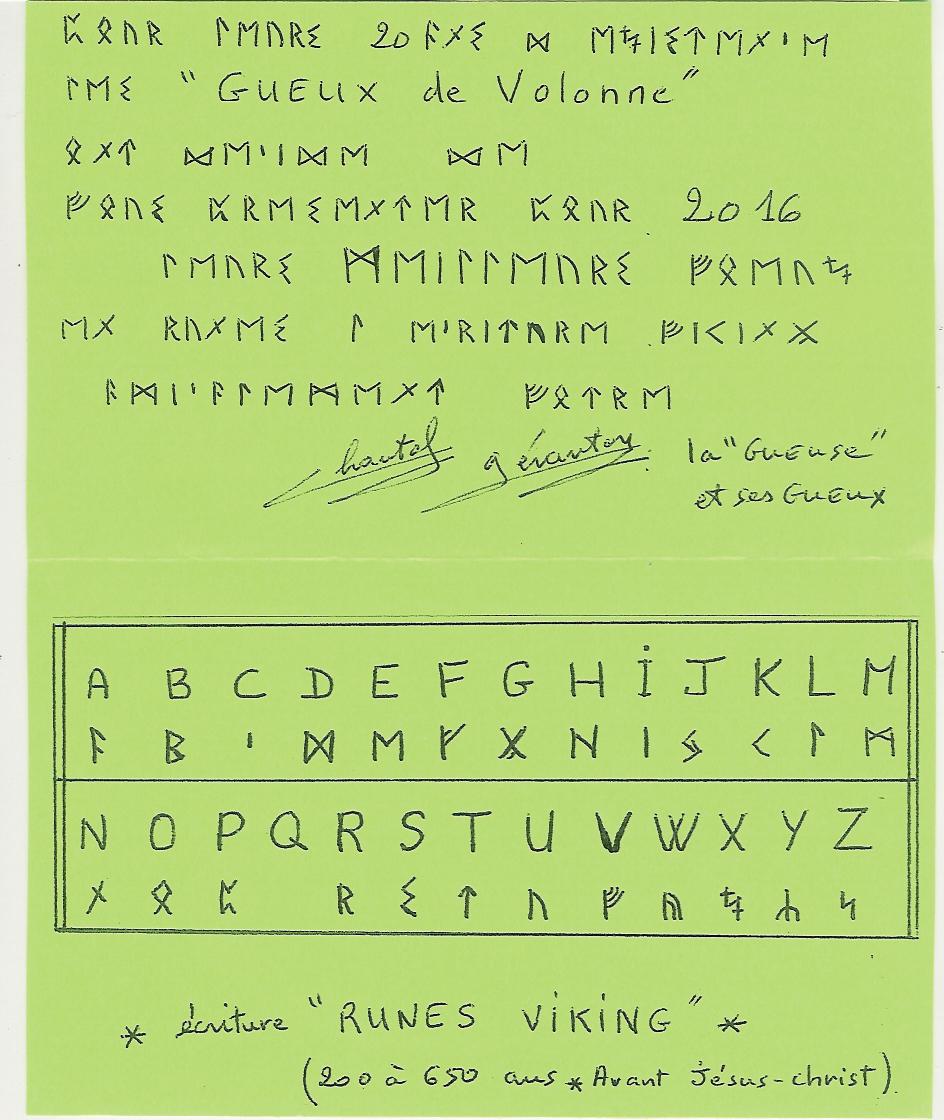 ᛈᛟᚢᚱ ᛚᛖᚢᚱᛊ 20 ᚨᚾᛊ ᛞ ᛖᛪᛁᛊᛏᛖᚾᛌᛖ
ᛚᛖᛊ "GUEUX de Volonne"
ᛟᚾᛏ ᛞᛖᛌᛁᛞᛖ ᛞᛖ
ᚡᛟᚢᛊ ᛈᚱᛖᛊᛖᚾᛏᛖᚱ ᛈᛟᚢᚱ 2016
ᛚᛖᚢᚱᛊ ᛗᛖᛁᛚᛚᛖᚢᚱᛊ ᚡᛟᛖᚢᛪ
ᛖᚾ ᚱᚢᚾᛖᛊ ᛚ ᛖᛌᚱᛁᛏᚢᚱᛖ ᚡᛁᚲᛁᚾᚸ
ᚨᛗᛁᛌᚨᛚᛖᛗᛖᚾᛏ ᚡᛟᛏᚱᛖ
Chantal la "GUEUSE"
et ses GUEUX
A B C D E F G H I J K L M
ᚨ ᛒ ᛌ ᛞ ᛖ ᚠ ᚸ ᚺ ᛁ ᛃ ᚲ ᛚ ᛗ
N O P Q R S T U V W X Y Z
ᚾ ᛟ ᛈ ᚱ ᛊ ᛏ ᚢ ᚡ ᚥ ᛪ ᛦ ᛋ
* écriture "RUNES VIKING" *
(200 à 650 ans * Avant Jésus-christ)